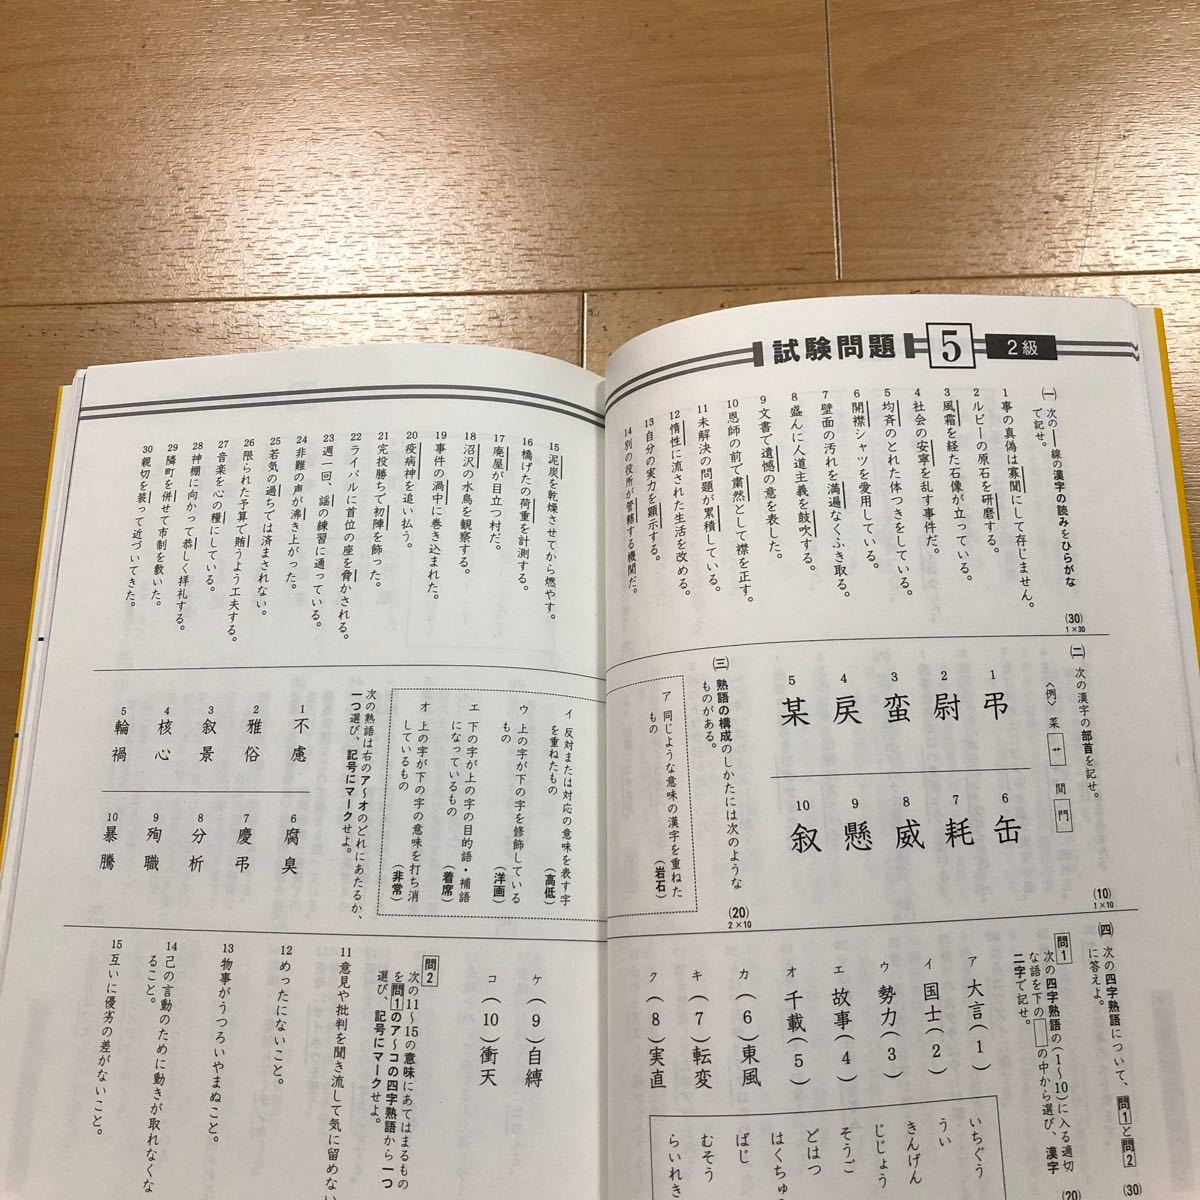 試験問題 5 2級
㈠ 次の──線の漢字の読みをひらがな
で記せ。
(30)
1×30
1 事の真偽は寡聞にして存じません。
2 ルビーの原石を研磨する。
3 風霜を経た石像が立っている。
4 社会の安寧を乱す事件だ。
5 均斉のとれた体つきをしている。
6 開襟シャツを愛用している。
7 壁面の汚れを満遍なくふき取る。
8 盛んに人道主義を鼓吹する。
9 文書で遺憾の意を表した。
10 恩師の前で粛然として襟を正す。
11 未解決の問題が累積している。
12 惰性に流された生活を改める。
13 自分の実力を顕示する。
14 別の役所が管轄する機関だ。
15 泥炭を乾燥させてから燃やす。
16 橋げたの荷重を計測する。
17 廃屋が目立つ村だ。
18 沼沢の水鳥を観察する。
19 事件の渦中に巻き込まれた。
20 疫病神を追い払う。
21 完投勝ちで初陣を飾った。
22 ライバルに首位の座を脅かされる。
23 週一回、謡の練習に通っている。
24 非難の声が沸き上がった。
25 若気の過ちでは済まされない。
26 限られた予算で賄うよう工夫する。
27 音楽を心の糧にしている。
28 神棚に向かって恭しく拝礼する。
29 隣町を併せて市制を敷いた。
30 親切を装って近づいてきた。
㈡ 次の漢字の部首を記せ。
(10)
1×10
〈例〉 菜 艹 間 門
1 弔
2 尉
3 蛮
4 戻
5 某
6 缶
7 耗
8 威
9 懸
10 叙
㈢ 熟語の構成のしかたには次のような
ものがある。
(20)
2×10
ア 同じような意味の漢字を重ねた
もの (岩石)
イ 反対または対応の意味を表す字
を重ねたもの (高低)
ウ 上の字が下の字を修飾している
もの (洋画)
エ 下の字が上の字の目的語・補語
になっているもの (着席)
オ 上の字が下の字の意味を打ち消
しているもの (非常)
次の熟語は右のア～オのどれにあたるか、
一つ選び、記号にマークせよ。
1 不慮
2 雅俗
3 叙景
4 核心
5 輪禍
6 腐臭
7 慶弔
8 分析
9 殉職
10 暴騰
㈣ 次の四字熟語について、問1と問2
に答えよ。
(30)
問1
次の四字熟語の(1～10)に入る適切
な語を下の□の中から選び、漢字
二字で記せ。
(20)
ア 大言(1)
イ 国士(2)
ウ 勢力(3)
エ 故事(4)
オ 千載(5)
カ (6)東風
キ (7)転変
ク (8)実直
ケ (9)自縛
コ (10)衝天
いちぐう
うい
きんげん
じじょう
そうご
どはつ
はくちゅ
ばじ
むそう
らいれき
問2
次の11～15の意味にあてはまるもの
を問1のア～コの四字熟語から一つ
選び、記号にマークせよ。
11 意見や批判を聞き流して気に留めない
12 めったにないこと。
13 物事がうつろいやまぬこと。
14 己の言動のために動きが取れなくな
ること。
15 互いに優劣の差がないこと。